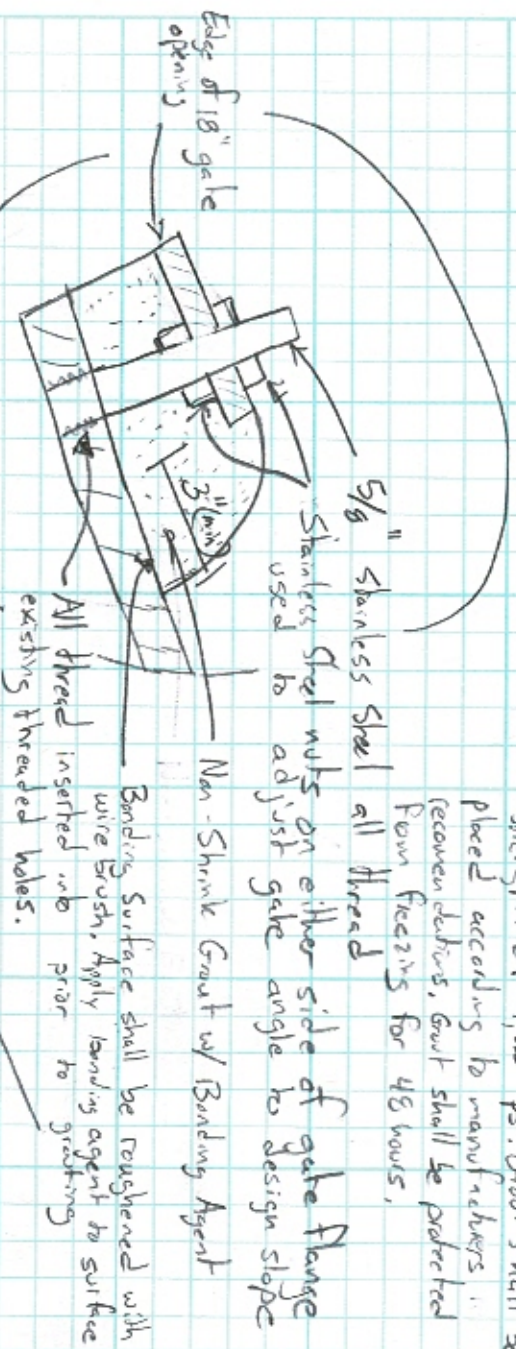 placed according to manufacturers
recomendations. Grout shall be protected
from freezing for 48 hours.
Edge of 18" gate
opening
5/8" Stainless Steel all thread
Stainless Steel nuts on either side of gate flange
used to adjust gate angle to design slope
3" (min)
Non-Shrink Grout w/ Bonding Agent
Bonding Surface shall be roughened with
wire brush. Apply bonding agent to surface
prior to grouting
All thread inserted into
existing threaded holes.